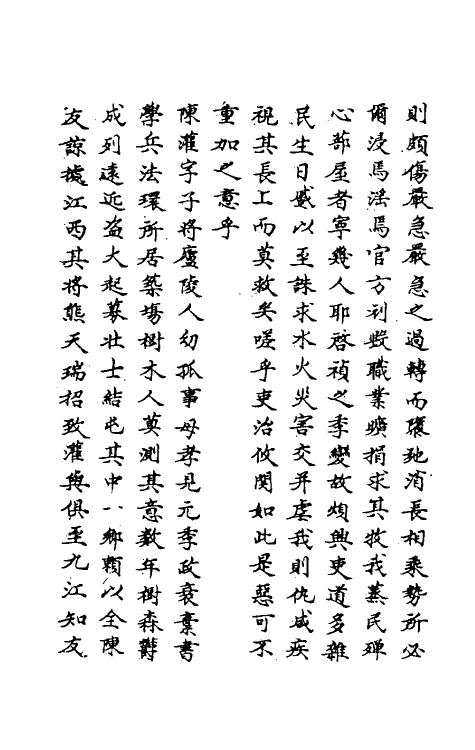 則頗傷嚴急嚴急之過轉而環弛消長相乘勢所必
爾浸焉滛焉官方刓毀職業曠捐求其牧我蒸民殫
心蔀屋者寧幾人耶啓禎之季變故煩興吏道多雜
民生日蹙以至誅求水火災害交并虐我則仇咸疾
視其長上而莫救矣嗟乎吏治攸関如此是惡可不
重加之意乎
陳灌字子將廬陵人幼孤事母孝見元季政衰棄書
學兵法環所居築塲樹木人莫測其意數年樹森欝
成列遠近盗大起募壯士結屯其中一鄉賴以全陳
友諒據江西其將熊天瑞招致灌與俱至九江知友